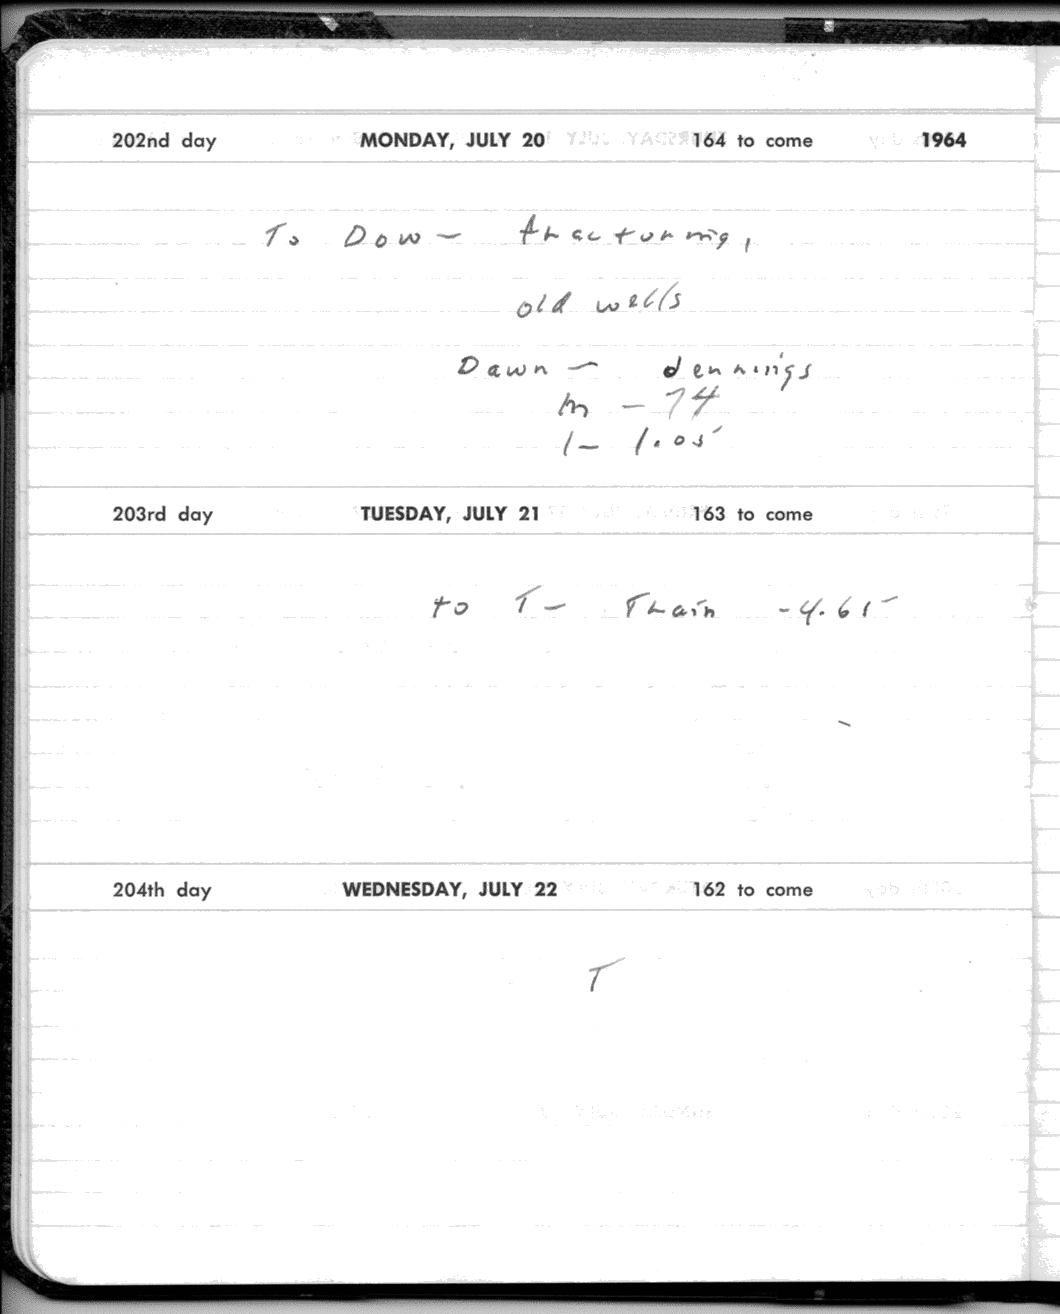 202nd day MONDAY, JULY 20 164 to come 1964
To Dow - fracturing,
old wells
Dawn - dennings
m - 74
1 - 1.05
203rd day TUESDAY, JULY 21 163 to come
to T - Train - 4.65
204th day WEDNESDAY, JULY 22 162 to come
T